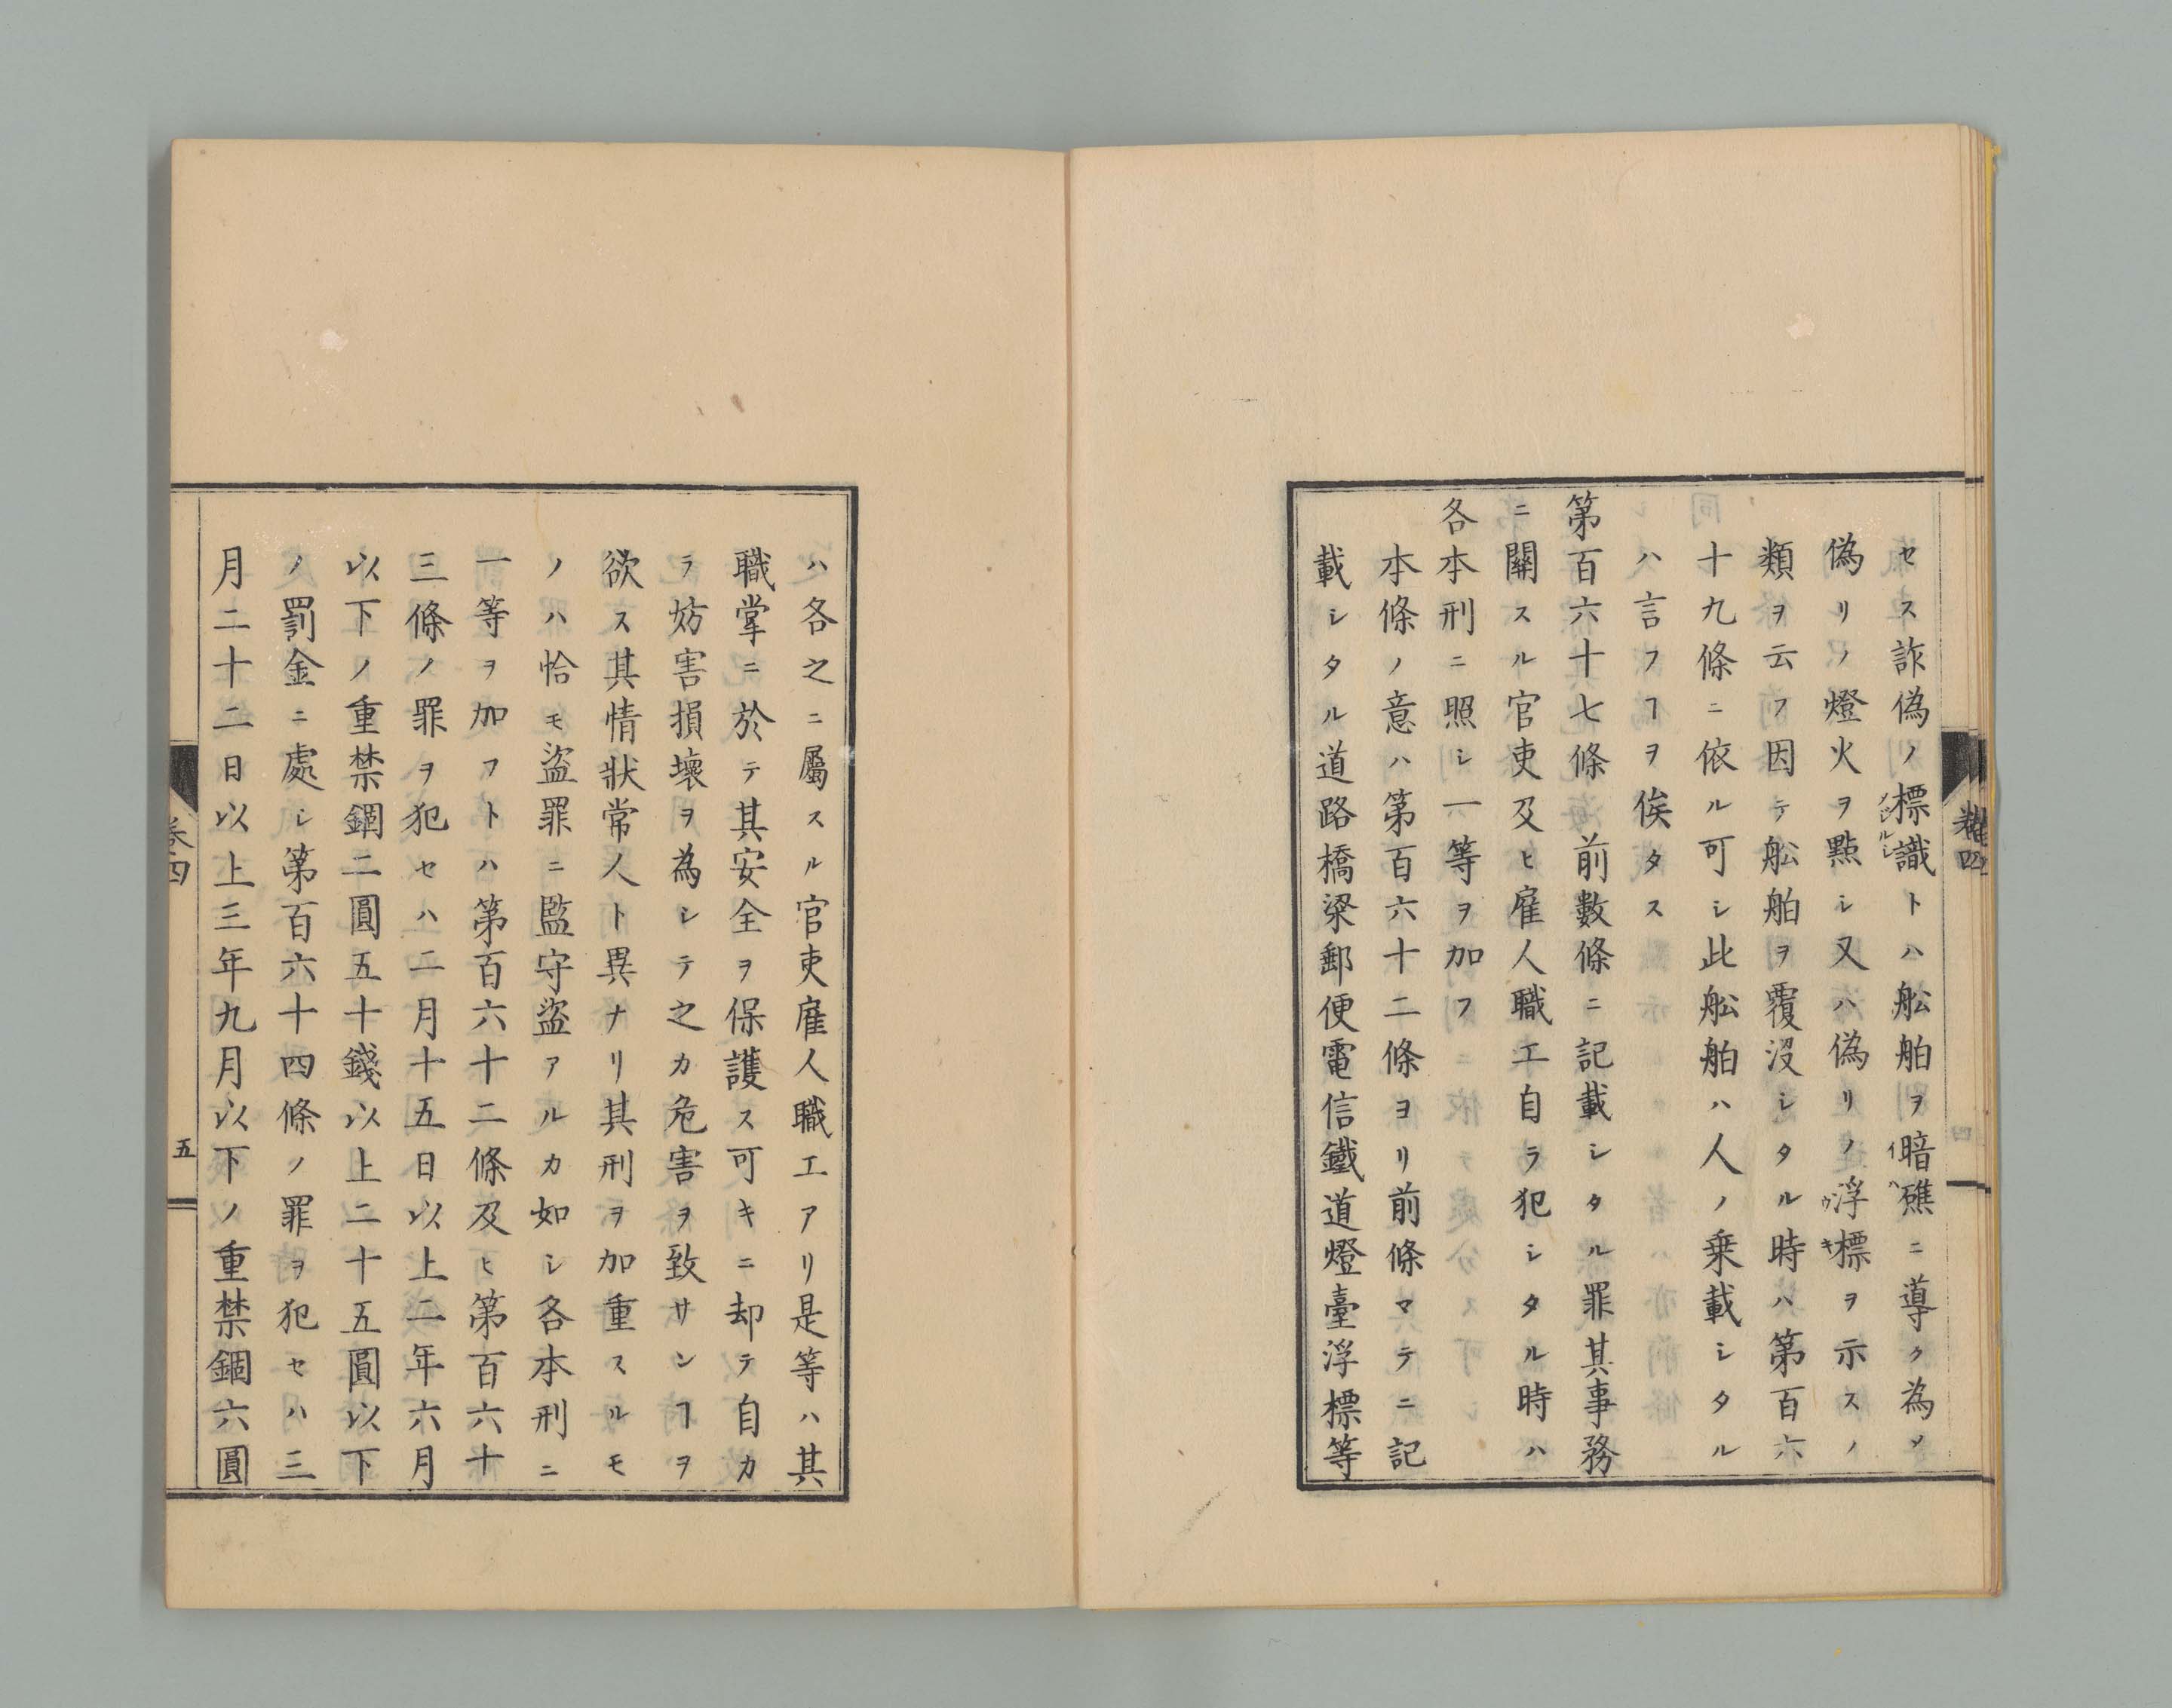 セス詐偽ノ標識トハ舩舶ヲ暗礁ニ導ク為メ
偽リノ燈火ヲ點シ又ハ偽リノ浮標ヲ示スノ
類ヲ云フ因テ舩舶ヲ覆沒シタル時ハ第百六
十九條ニ依ル可シ此舩舶ハ人ノ乗載シタル
ハ言フヿヲ俟タス
第百六十七條 前數條ニ記載シタル罪其事務
ニ關スル官吏及ヒ雇人職工自ラ犯シタル時ハ
各本刑ニ照シ一等ヲ加フ
本條ノ意ハ第百六十二條ヨリ前條マテニ記
載シタル道路橋梁郵便電信鐵道燈臺浮標等
ハ各之ニ屬スル官吏雇人職工アリ是等ハ其
職掌ニ於テ其安全ヲ保護ス可キニ却テ自カ
ラ妨害損壞ヲ為シテ之カ危害ヲ致サンヿヲ
欲ス其情狀常人ト異ナリ其刑ヲ加重スルモ
ノハ恰モ盜罪ニ監守盜アルカ如シ各本刑ニ
一等ヲ加フトハ第百六十二條及ヒ第百六十
三條ノ罪ヲ犯セハ二月十五日以上二年六月
以下ノ重禁錮二圓五十錢以上二十五圓以下
ノ罰金ニ處シ第百六十四條ノ罪ヲ犯セハ三
月二十二日以上三年九月以下ノ重禁錮六圓
卷四
五